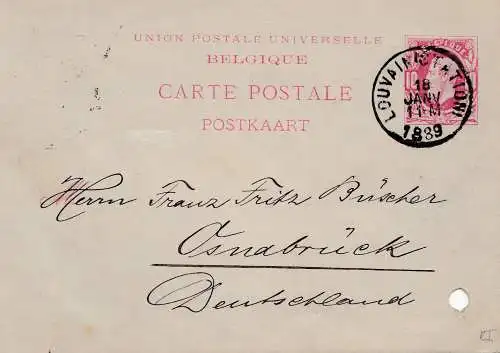 UNION POSTALE UNIVERSELLE
BELGIQUE
CARTE POSTALE
POSTKAART
10
LOUVAIN (STATION)
18
JANV
11-M
1889
Herrn Franz Fritz Büscher
Osnabrück
Deutschland